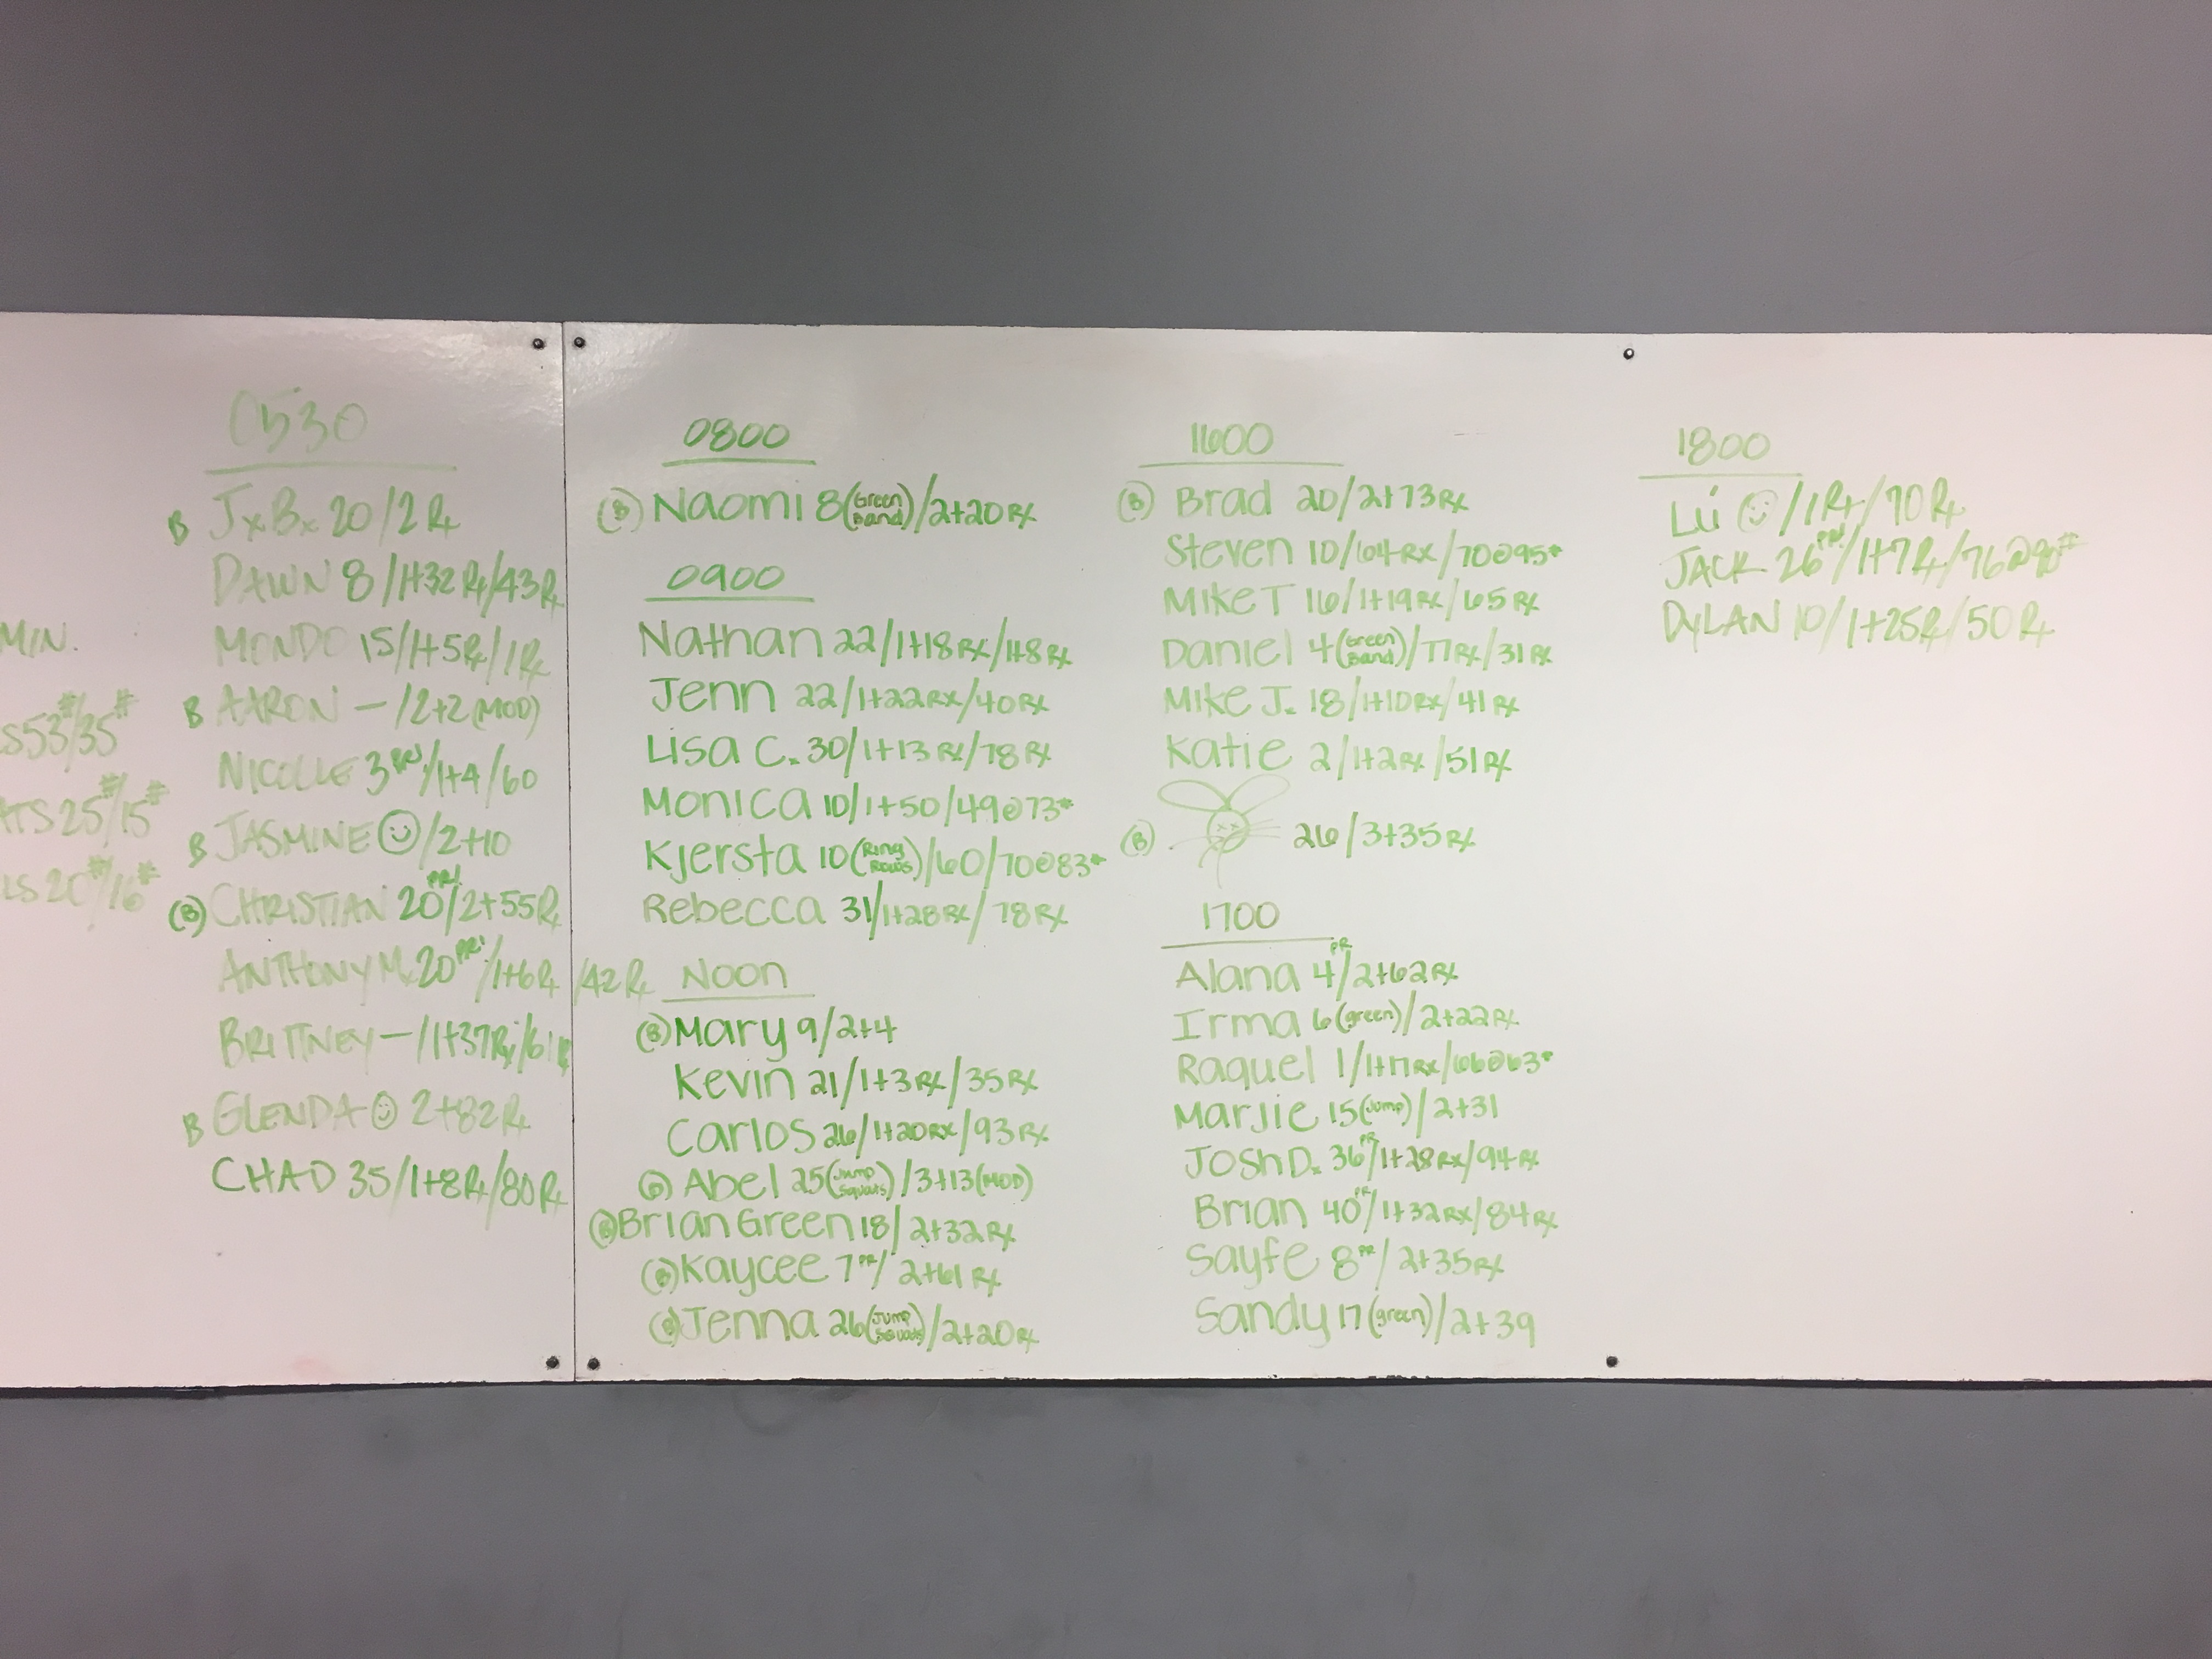 MIN.
S 53#/35#
ATS 25#/15#
LS 20#/16#
0530
B J.B. 20/2 Rx
DAWN 8/1+32 Rx/43 Rx
MONDO 15/1+5 Rx/1 Rx
B AARON - /2+2 (MOD)
NICOLLE 3 /1+4/60
B JASMINE ☺/2+10
(B) CHRISTIAN 20 PR!/2+55 Rx
ANTHONY M. 20 PR!/1+6 Rx/42 Rx
BRITTNEY - /1+37 Rx/61 Rx
B GLENDA ☺ 2+82 Rx
CHAD 35/1+8 Rx/80 Rx
0800
(B) Naomi 8 (Green Band)/2+20 Rx
0900
Nathan 22/1+18 Rx/48 Rx
Jenn 22/1+22 Rx/40 Rx
Lisa C. 30/1+13 Rx/78 Rx
Monica 10/1+50/49@73#
Kjersta 10 (Ring Rows)/60/70@83#
Rebecca 31/1+28 Rx/78 Rx
Noon
(B) Mary 9/2+4
Kevin 21/1+3 Rx/35 Rx
Carlos 26/1+20 Rx/93 Rx
(B) Abel 25 (Jump Squats)/3+13 (MOD)
(B) Brian Green 18/2+32 Rx
(B) Kaycee 7 PR/2+61 Rx
(B) Jenna 26 (Jump Squats)/2+20 Rx
1600
(B) Brad 20/2+73 Rx
Steven 10/64 Rx/70@95#
Mike T 16/1+19 Rx/65 Rx
Daniel 4 (Green Band)/77 Rx/31 Rx
Mike J. 18/1+10 Rx/41 Rx
Katie 2/1+2 Rx/51 Rx
(B) 26/3+35 Rx
1700
Alana 4 PR/2+62 Rx
Irma 6 (green)/2+22 Rx
Raquel 1/1+17 Rx/66@63#
Marjie 15 (Jump)/2+31
Josh D. 36 PR/1+28 Rx/94 Rx
Brian 40 PR/1+32 Rx/84 Rx
Sayfe 8 PR/2+35 Rx
Sandy 17 (green)/2+39
1800
Lú ☺/1 Rx/70 Rx
JACK 26 PR!/1+7 Rx/76@90#
DYLAN 10/1+25 Rx/50 Rx